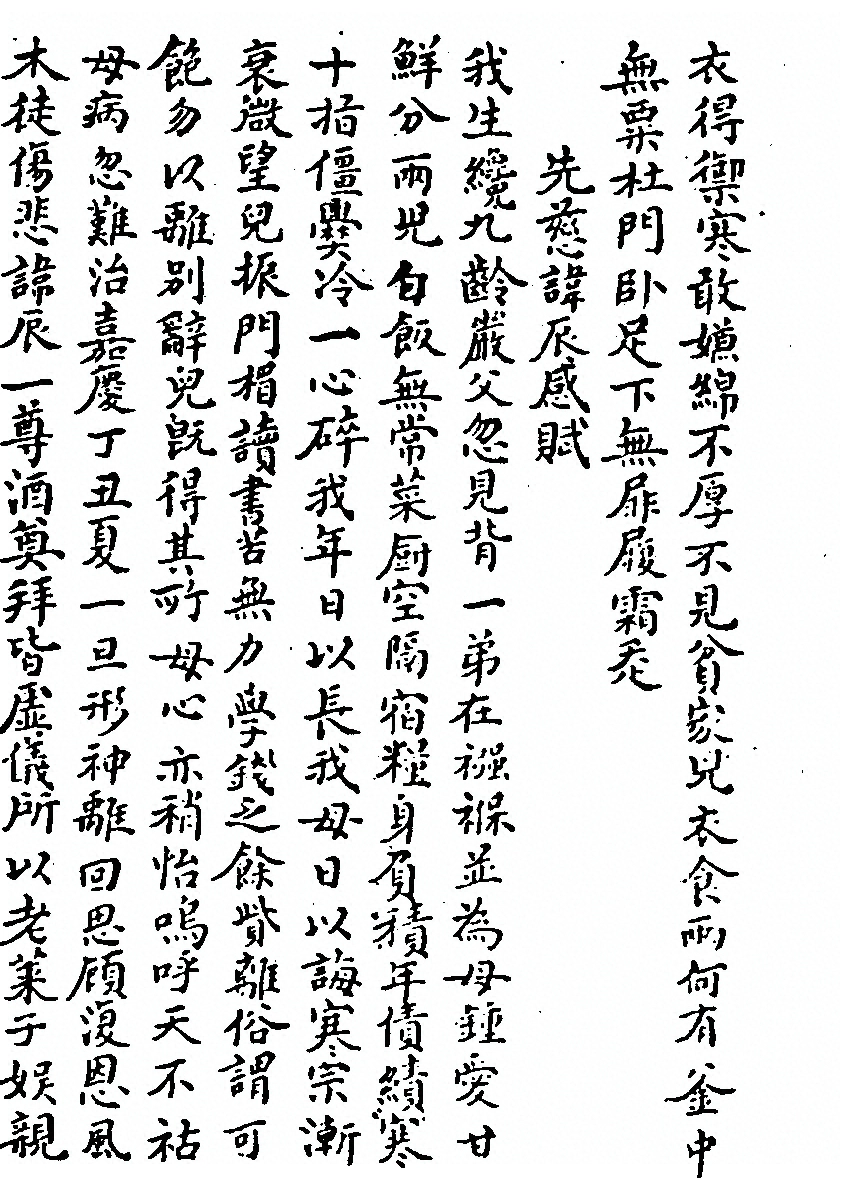 衣得禦寒敢嫌綿不厚不見貧家兒衣食兩何有釜中
無粟杜門卧足下無扉履霜走
先慈諱辰感賦
我生纔九齡嚴父忽見背一弟在襁褓並為母鍾愛甘
鮮分兩兒自飯無常菜厨空隔宿糧身負積年債績寒
十指僵爨冷一心碎我年日以長我母日以誨寒宗漸
衰微望兒振門楣讀書苦無力學錢乏餘貲離俗謂可
飽勿以離別辭兒既得其所母心亦稍怡嗚呼天不祜
母病忽難治嘉慶丁丑夏一旦形神離回思顧復恩風
木徒傷悲諱辰一尊酒奠拜皆虛儀所以老萊子娱親